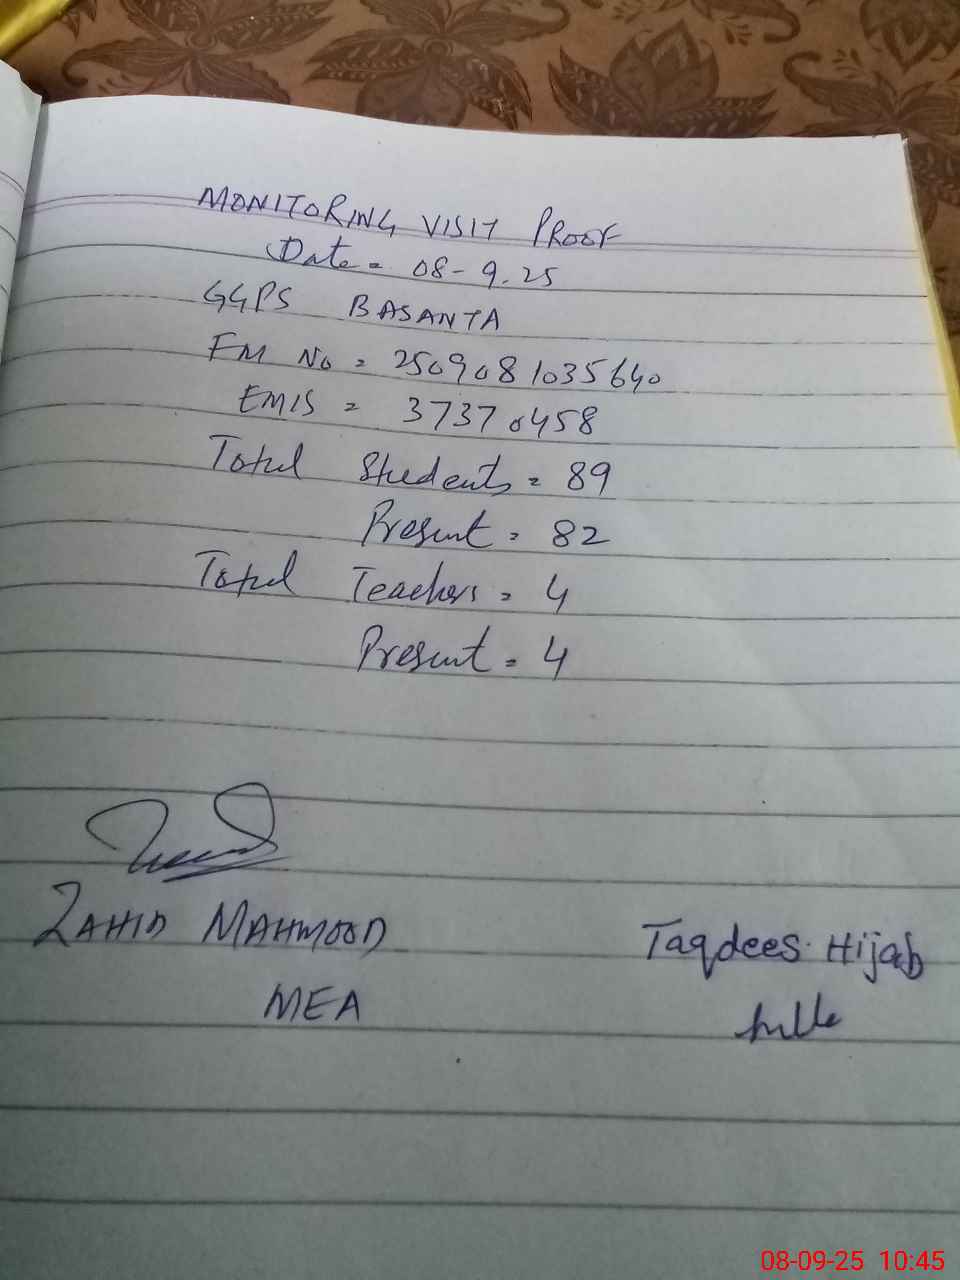 MONITORING VISIT PROOF
Date = 08-9.25
GGPS BASANTA
FM No = 2509081035640
EMIS = 37370458
Total Students = 89
Present = 82
Total Teachers = 4
Present = 4
ZAHID MAHMOOD
MEA
Taqdees Hijab
08-09-25 10:45